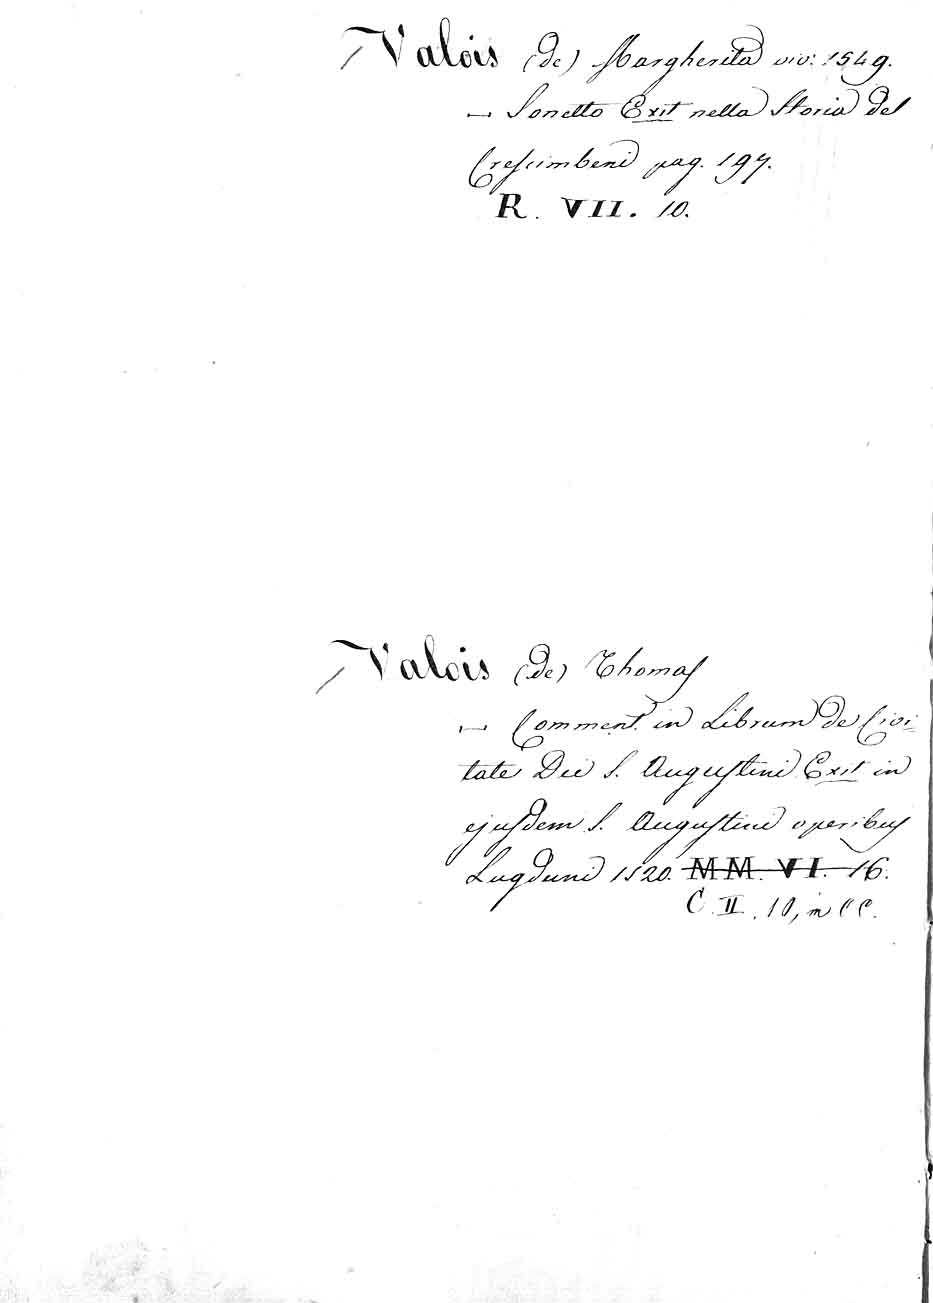 Valois (de) Margherita viv: 1549.
— Sonetto Exit nella Storia del
Crescimbeni pag. 197.
R. VII. 10.
Valois (de) Thomas
— Comment. in Librum de Civi=
tate Dei S. Augustini Exit in
ejusdem S. Augustini operibus
Lugduni 1520. MM. VI. 16.
C. II. 10, in CC.